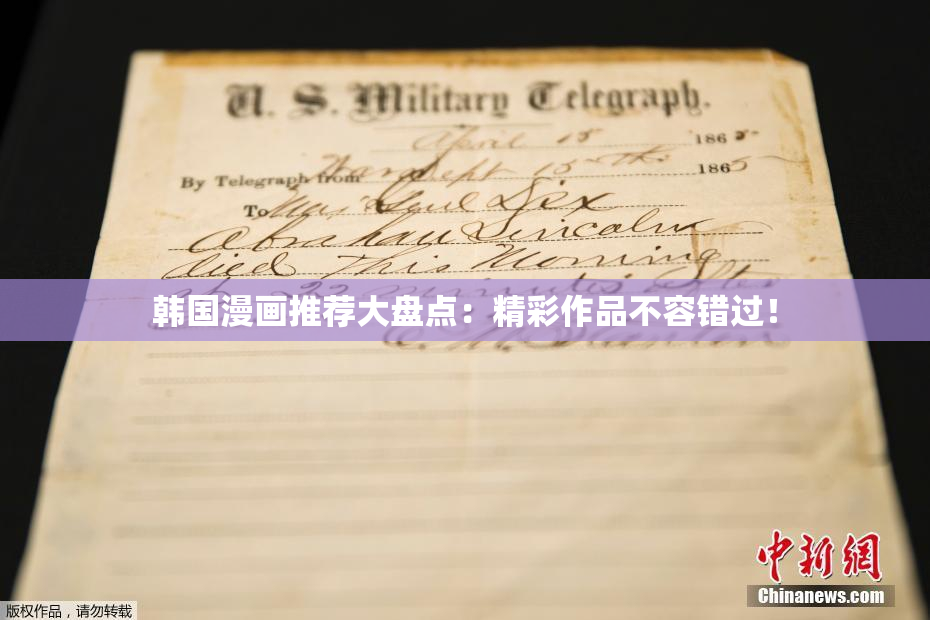 U. S. Military Telegraph.
April 15 1865
By Telegraph from War Dept 15th 1865
To Maj Genl Dix
Abraham Lincoln
died This Morning
at 22 minutes after
韩国漫画推荐大盘点：精彩作品不容错过！
E. M. Stanton
中新网
Chinanews.com
版权作品，请勿转载